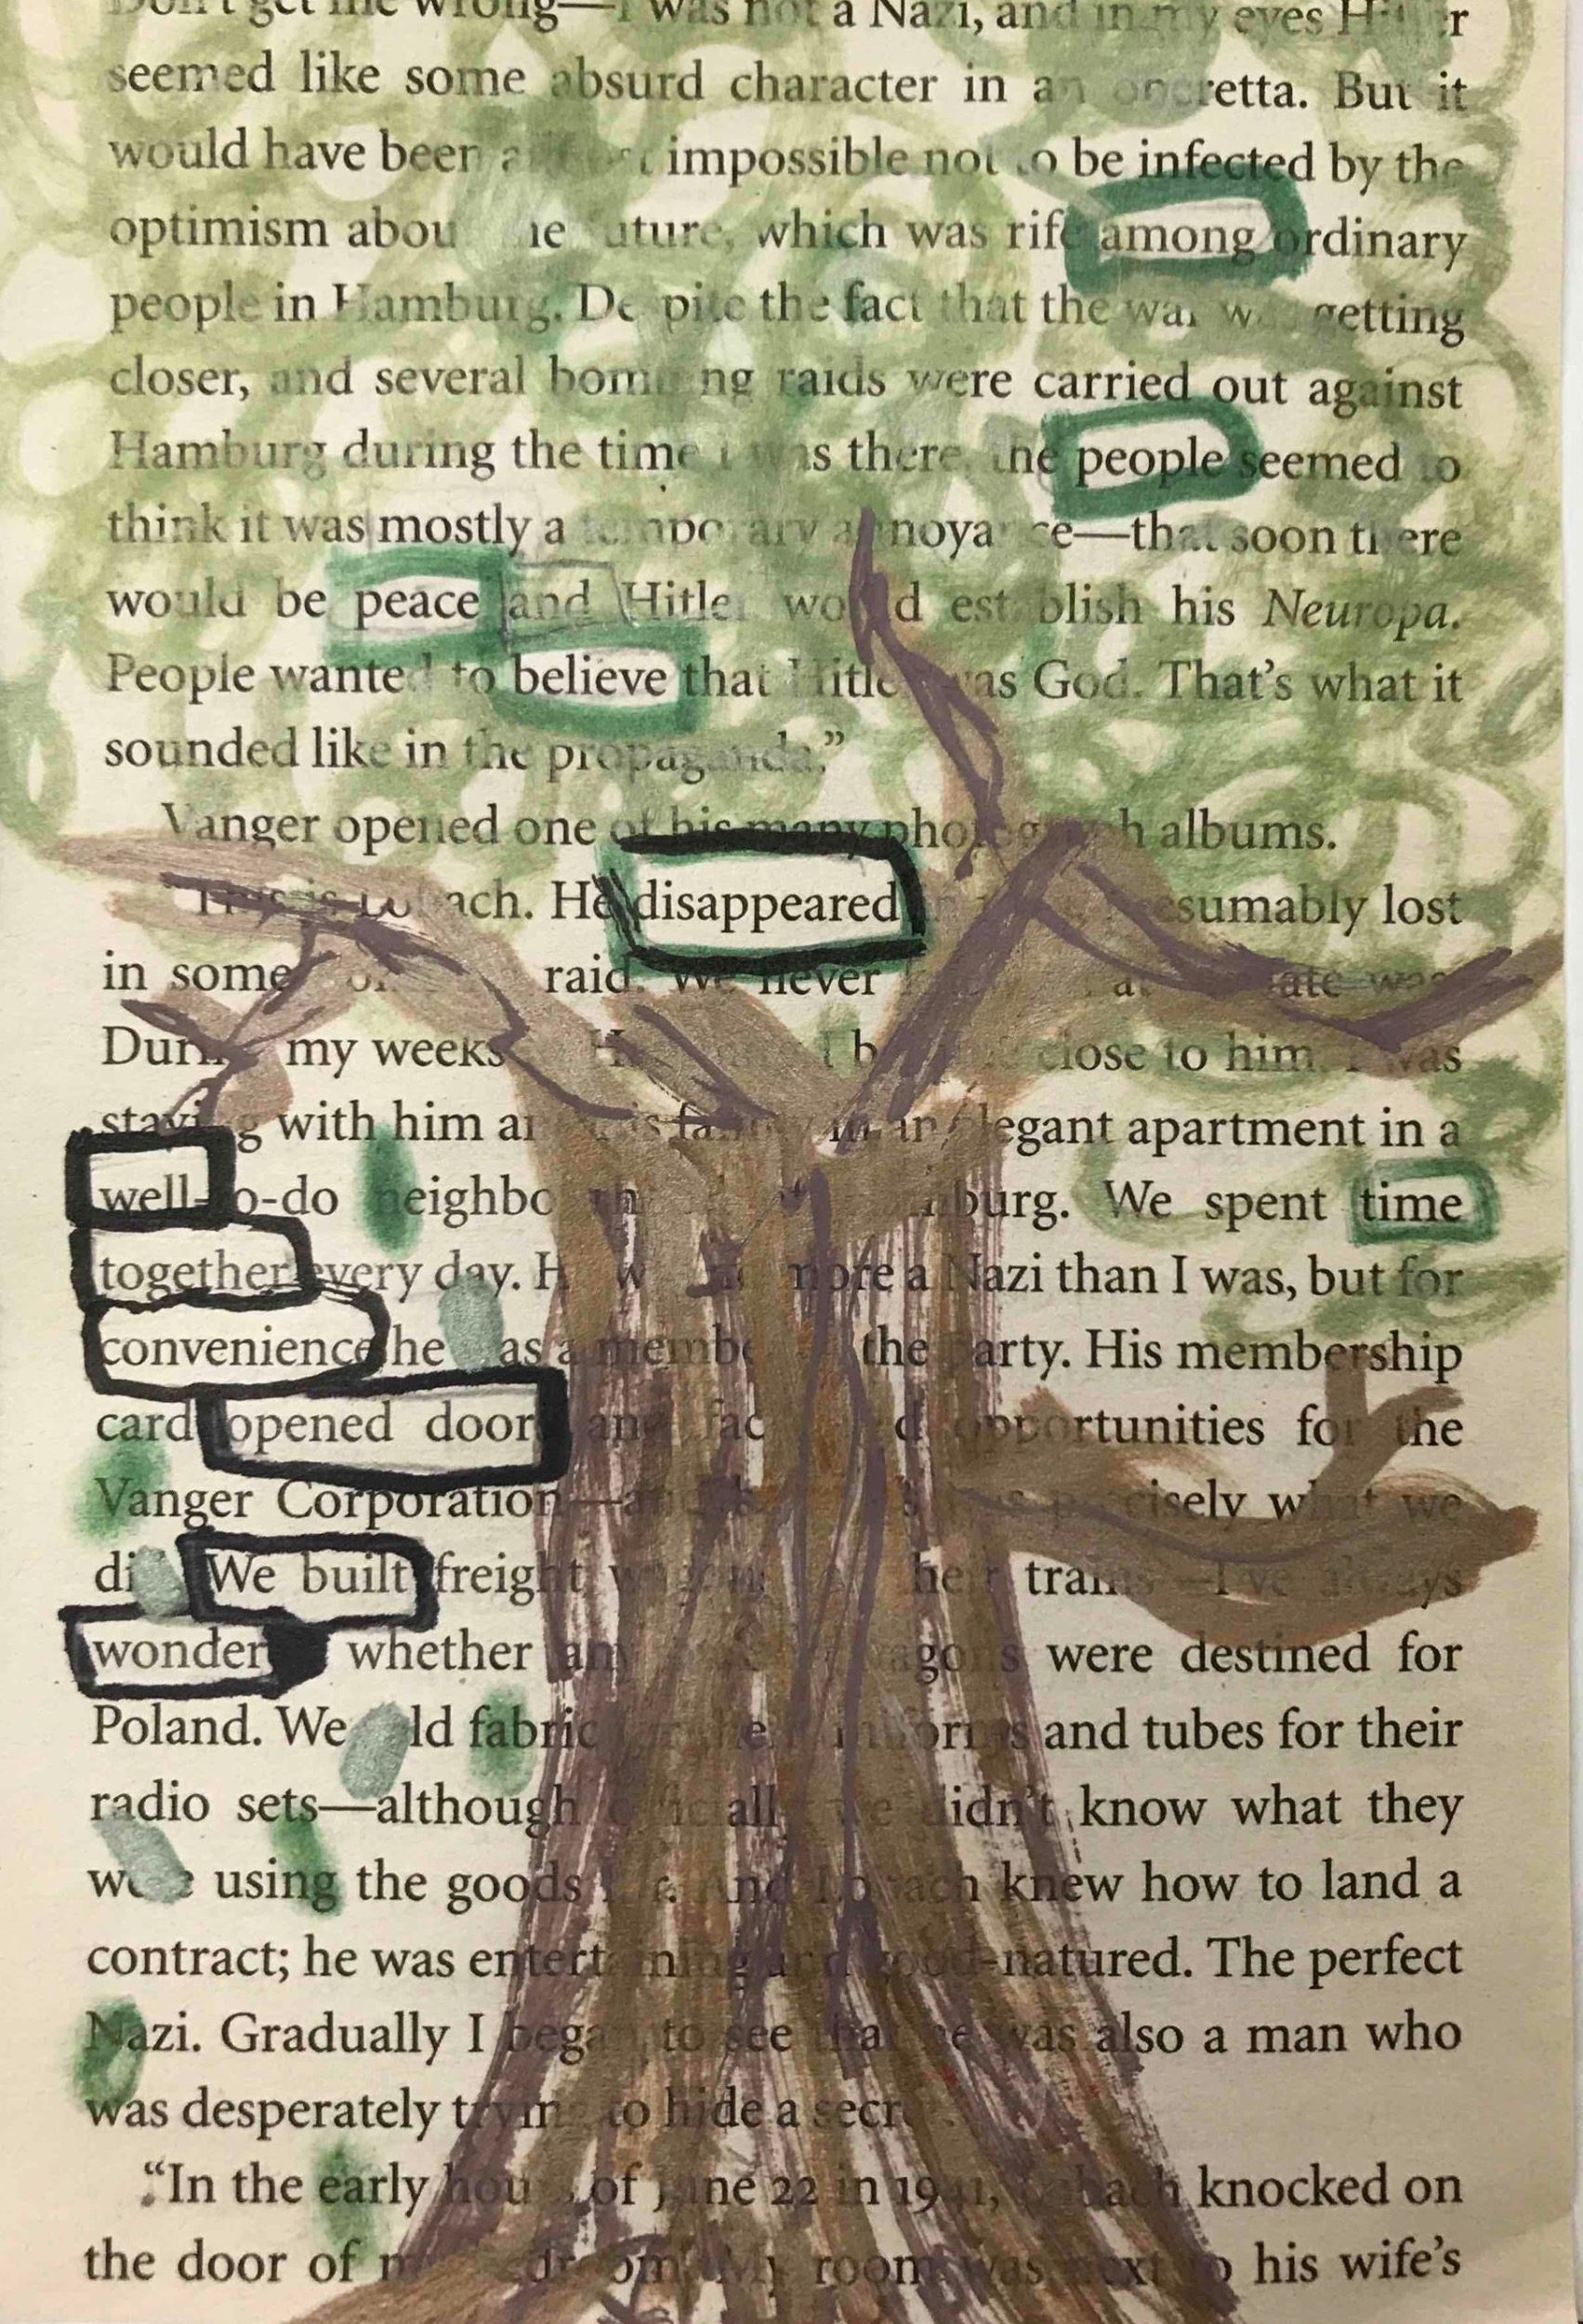 Don't get me wrong—I was not a Nazi, and in my eyes
seemed like some absurd character in an operetta. But it
would have been impossible not to be infected by the
optimism about the future, which was rife among ordinary
people in Hamburg. Despite the fact that the war was getting
closer, and several bombing raids were carried out against
Hamburg during the time I was there, the people seemed to
think it was mostly a temporary annoyance—that soon there
would be peace and Hitler would establish his Neuropa.
People wanted to believe that Hitler was God. That's what it
sounded like in the propaganda."
Vanger opened one of his many photograph albums.
"This is Lobach. He disappeared presumably lost
in some raid. We never fate was.
During my weeks close to him. I was
staying with him and his family in an elegant apartment in a
well-to-do neighbo burg. We spent time
together every day. He was no more a Nazi than I was, but for
convenience he was a member the Party. His membership
card opened door and opportunities for the
Vanger Corporation— was precisely what we
did. We built freight wagons their trains—I've always
wonder whether any wagons were destined for
Poland. We sold fabric uniforms and tubes for their
radio sets—although officially we didn't know what they
were using the goods for. And Lobach knew how to land a
contract; he was entertaining and good-natured. The perfect
Nazi. Gradually I began to see that he was also a man who
was desperately trying to hide a secret.
"In the early hours of June 22 in 1941, Lobach knocked on
the door of my bedroom. My room was next to his wife's